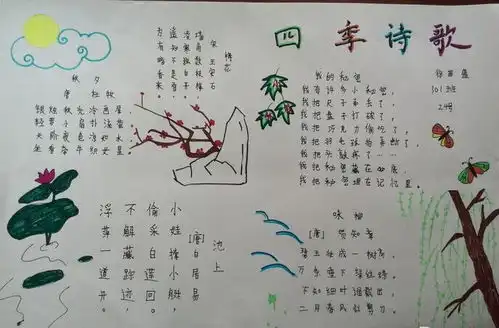 四季诗歌
秋夕
唐 杜牧
银烛秋光冷画屏,
轻罗小扇扑流萤。
天阶夜色凉如水,
坐看牵牛织女星。
梅花
宋 王安石
墙角数枝梅,
凌寒独自开。
遥知不是雪,
为有暗香来。
我的秘密
我有许多小秘密,
我把尺子弄丢了,
我把盘子打破了,
我把巧克力偷吃了,
我把羽毛球拍弄断了,
我把头敲疼了……
我把秘密藏在
我把秘密埋在记忆里。
101班
池上
[唐]白居易
小娃撑小艇,
偷采白莲回。
不解藏踪迹,
浮萍一道开。
咏柳
[唐] 贺知章
碧玉妆成一树高,
万条垂下绿丝绦。
不知细叶谁裁出,
二月春风似剪刀。